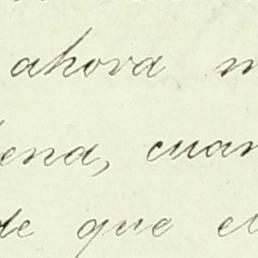 ahora m
ena, cuan
de que el